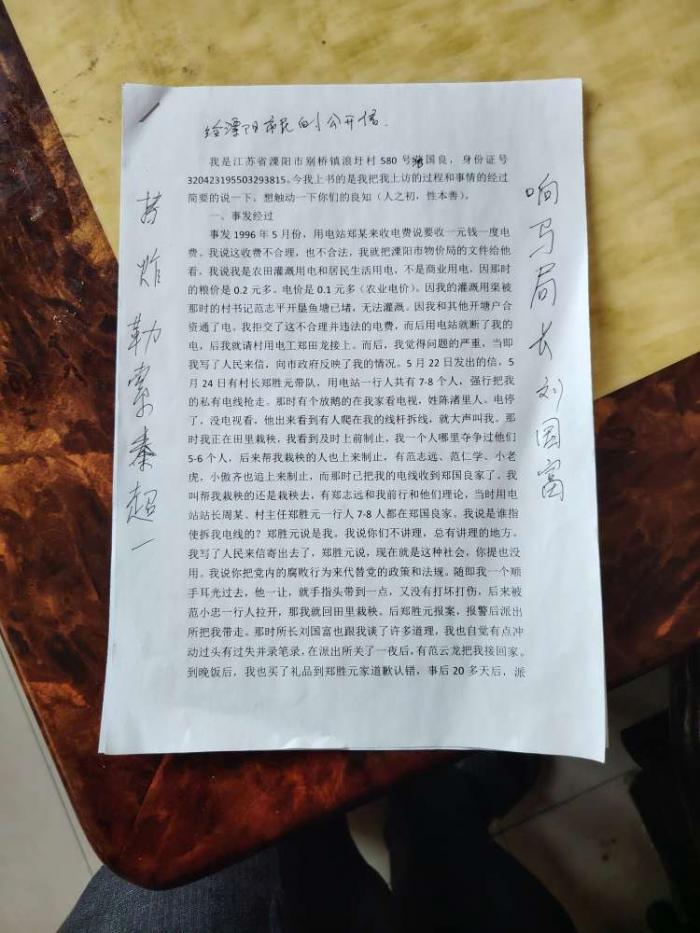 给溧阳市民的公开信
我是江苏省溧阳市别桥镇浪圩村 580 号 国良，身份证号
320423195503293815。今我上书的是我把我上访的过程和事情的经过
简要的说一下。想触动一下你们的良知（人之初，性本善）。
一、事发经过
事发 1996 年 5 月份，用电站郑某来收电费说要收一元钱一度电
费。我说这收费不合理，也不合法，我就把溧阳市物价局的文件给他
看，我说我是农田灌溉用电和居民生活用电，不是商业用电，因那时
的粮价是 0.2 元多。电价是 0.1 元多（农业电价）。因我的灌溉用渠被
那时的村书记范志平开垦鱼塘已堵，无法灌溉。因我和其他开塘户合
资通了电。我拒交了这不合理并违法的电费，而后用电站就断了我的
电，后我就请村用电工郑田龙接上。而后，我觉得问题的严重，当即
我写了人民来信，向市政府反映了我的情况。5 月 22 日发出的信，5
月 24 日有村长郑胜元带队，用电站一行人共有 7-8 个人，强行把我
的私有电线抢走。那时有个放鹅的在我家看电视，姓陈渚里人。电停
了，没电视看，他出来看到有人爬在我的线杆拆线，就大声叫我。那
时我正在田里栽秧，我看到及时上前制止，我一个人哪里夺争过他们
5-6 个人，后来帮我栽秧的人也上来制止，有范志远、范仁学、小老
虎，小傲齐也追上来制止，而那时已把我的电线收到郑国良家了。我
叫帮我栽秧的还是栽秧去，有郑志远和我前行和他们理论，当时用电
站站长周某、村主任郑胜元一行人 7-8 人都在郑国良家。我说是谁指
使拆我电线的？郑胜元说是我。我说你们不讲理，总有讲理的地方。
我写了人民来信寄出去了，郑胜元说，现在就是这种社会，你提也没
用。我说你把党内的腐败行为来代替党的政策和法规。随即我一个顺
手耳光过去，他一让，就手指头带到一点，又没有打坏打伤，后来被
范小忠一行人拉开，那我就回田里栽秧。后郑胜元报案，报警后派出
所把我带走。那时所长刘国富也跟我谈了许多道理，我也自觉有点冲
动过头有过失并录笔录，在派出所关了一夜后，有范云龙把我接回家。
到晚饭后，我也买了礼品到郑胜元家道歉认错，事后 20 多天后，派
响马局长刘国富
诈勒索秦超一